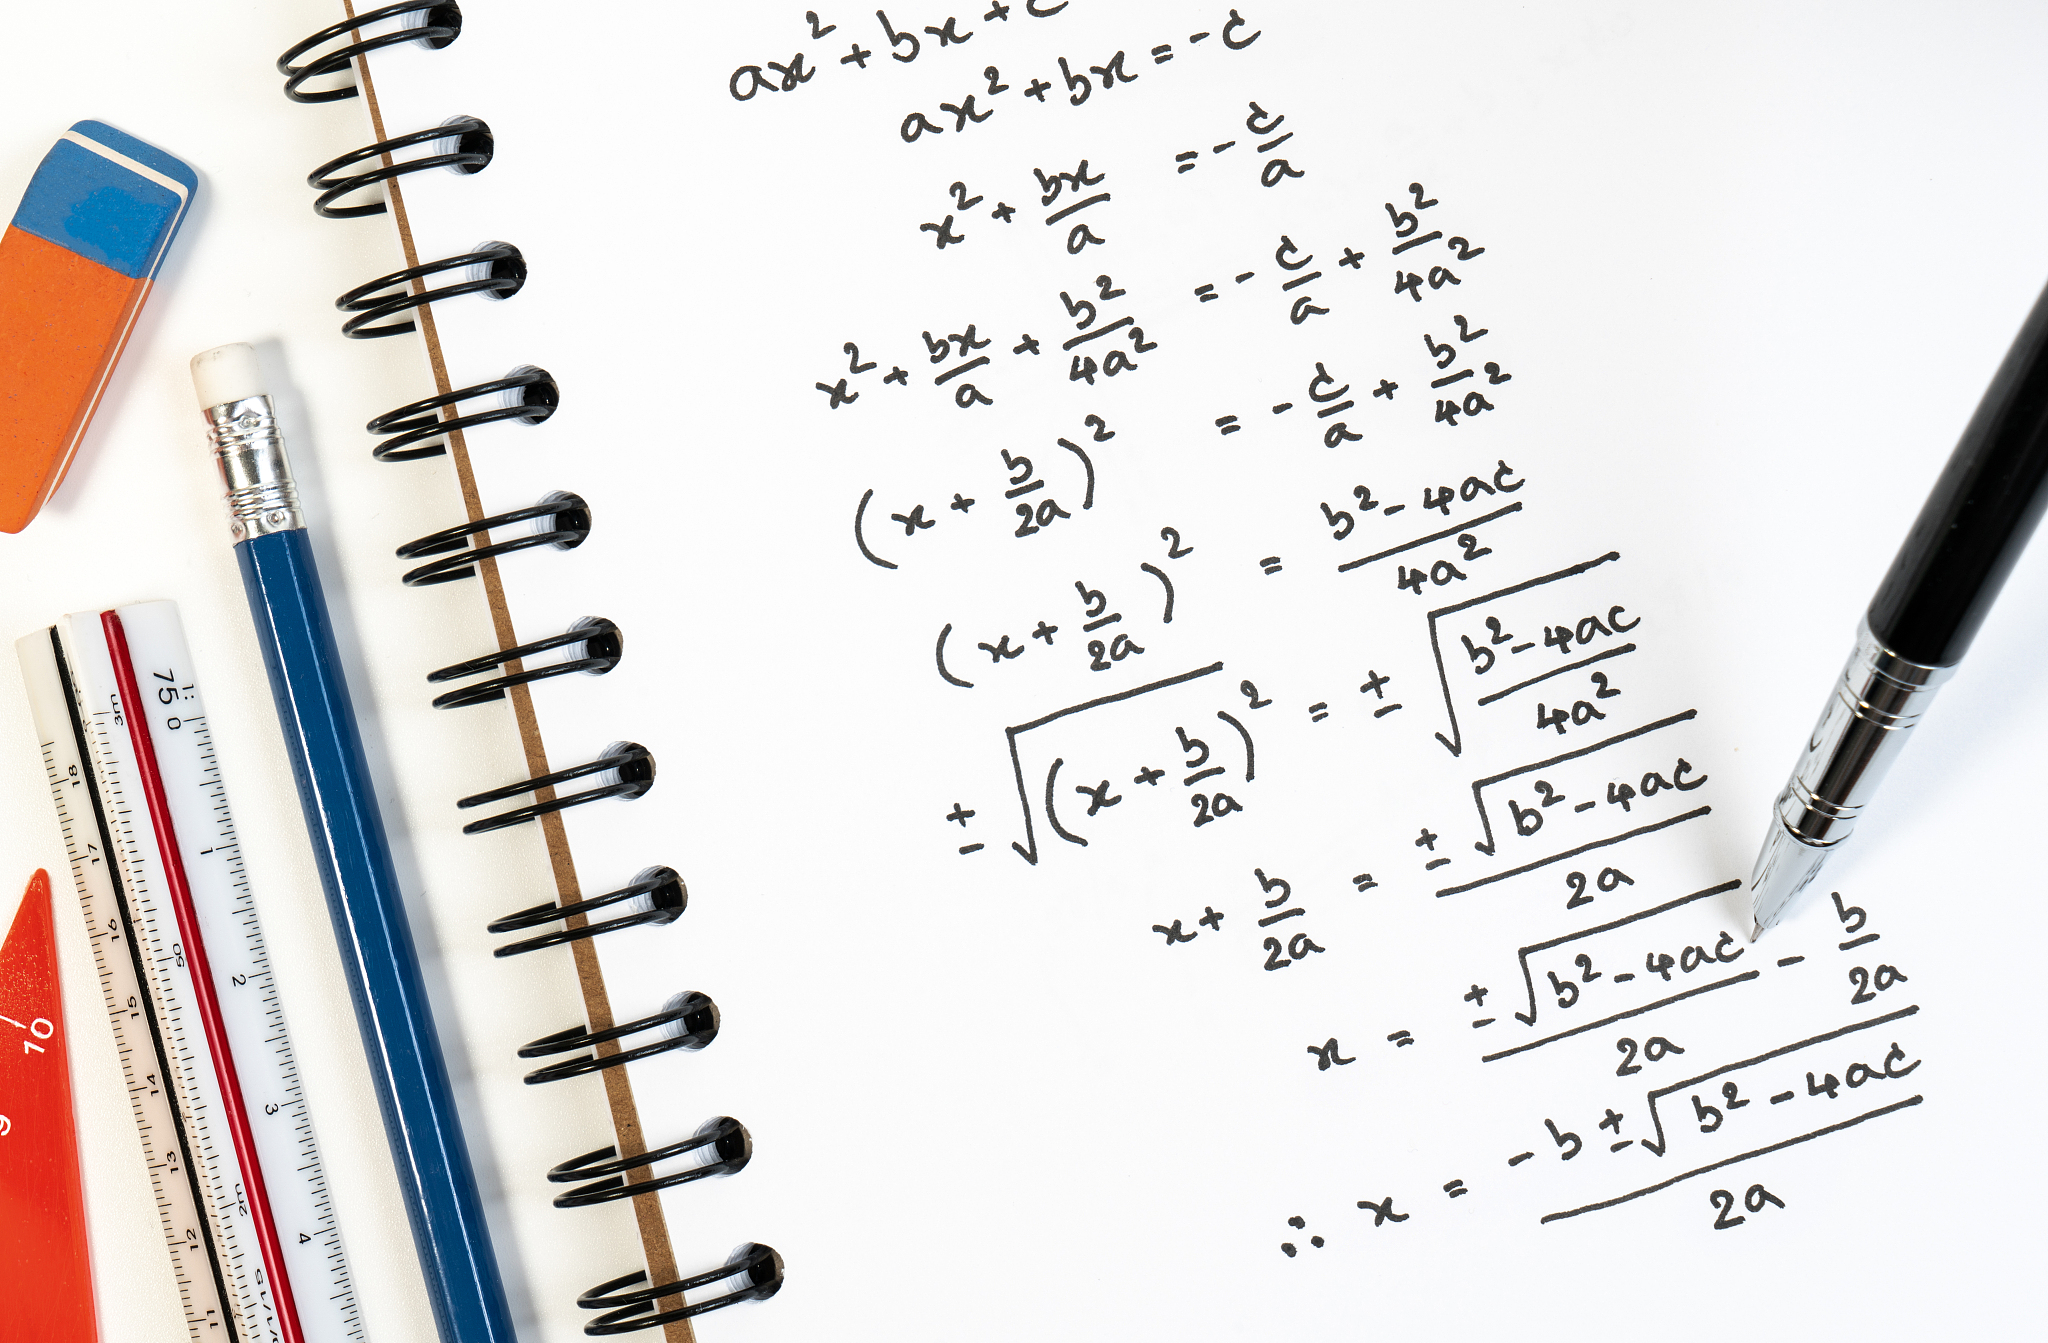 ax² + bx + c
ax² + bx = -c
x² + bx/a = - c/a
x² + bx/a + b²/4a² = - c/a + b²/4a²
(x + b/2a)² = - c/a + b²/4a²
(x + b/2a)² = b² - 4ac / 4a²
± √(x + b/2a)² = ± √(b² - 4ac / 4a²)
x + b/2a = ± √(b² - 4ac) / 2a
x = ± √(b² - 4ac) / 2a - b/2a
∴ x = -b ± √(b² - 4ac) / 2a
1:75
0 1 2 3 4
3m 2m
50
18 17 16 15 14 13 12 11
10
9